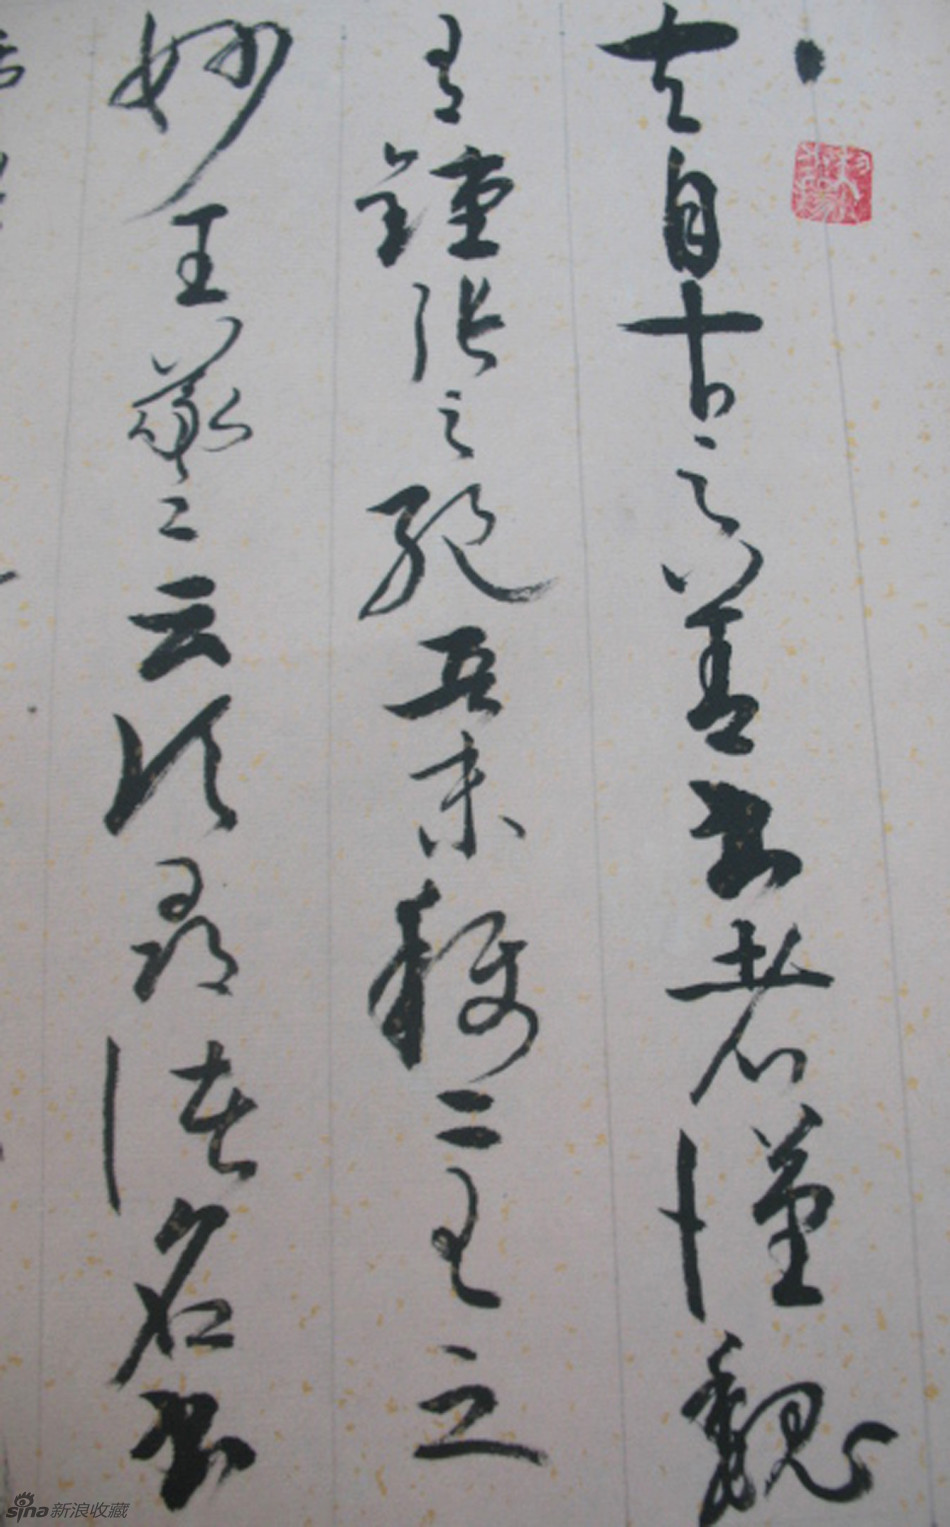 夫自古之善書者漢魏
有鍾張之絕晉末稱二王之
妙王羲之云頃尋諸名書
sina新浪收藏